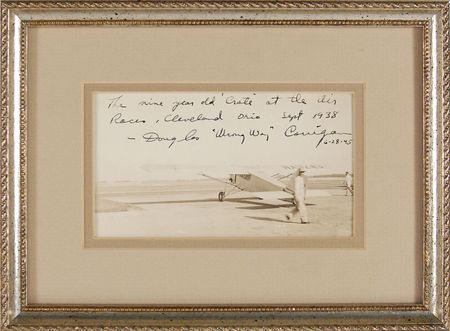 The nine year old "Crate" at the Air
Races, Cleveland Ohio Sept 1938
- Douglas "Wrong Way" Corrigan
6-28-45